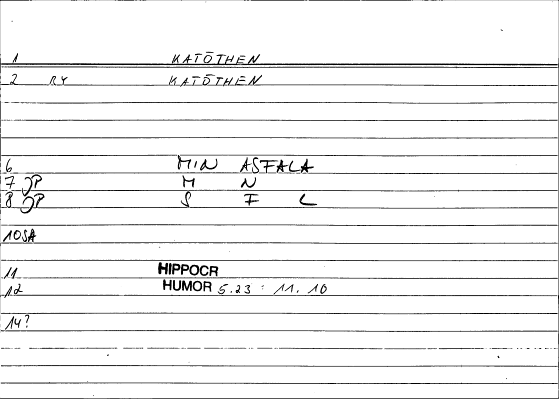 1 KATŌTHEN
2 RY KATŌTHEN
6 MIN ASFALA
7 JP M N
8 JP S F L
10SA
11 HIPPOCR
12 HUMOR 5.23 : 11, 10
14?